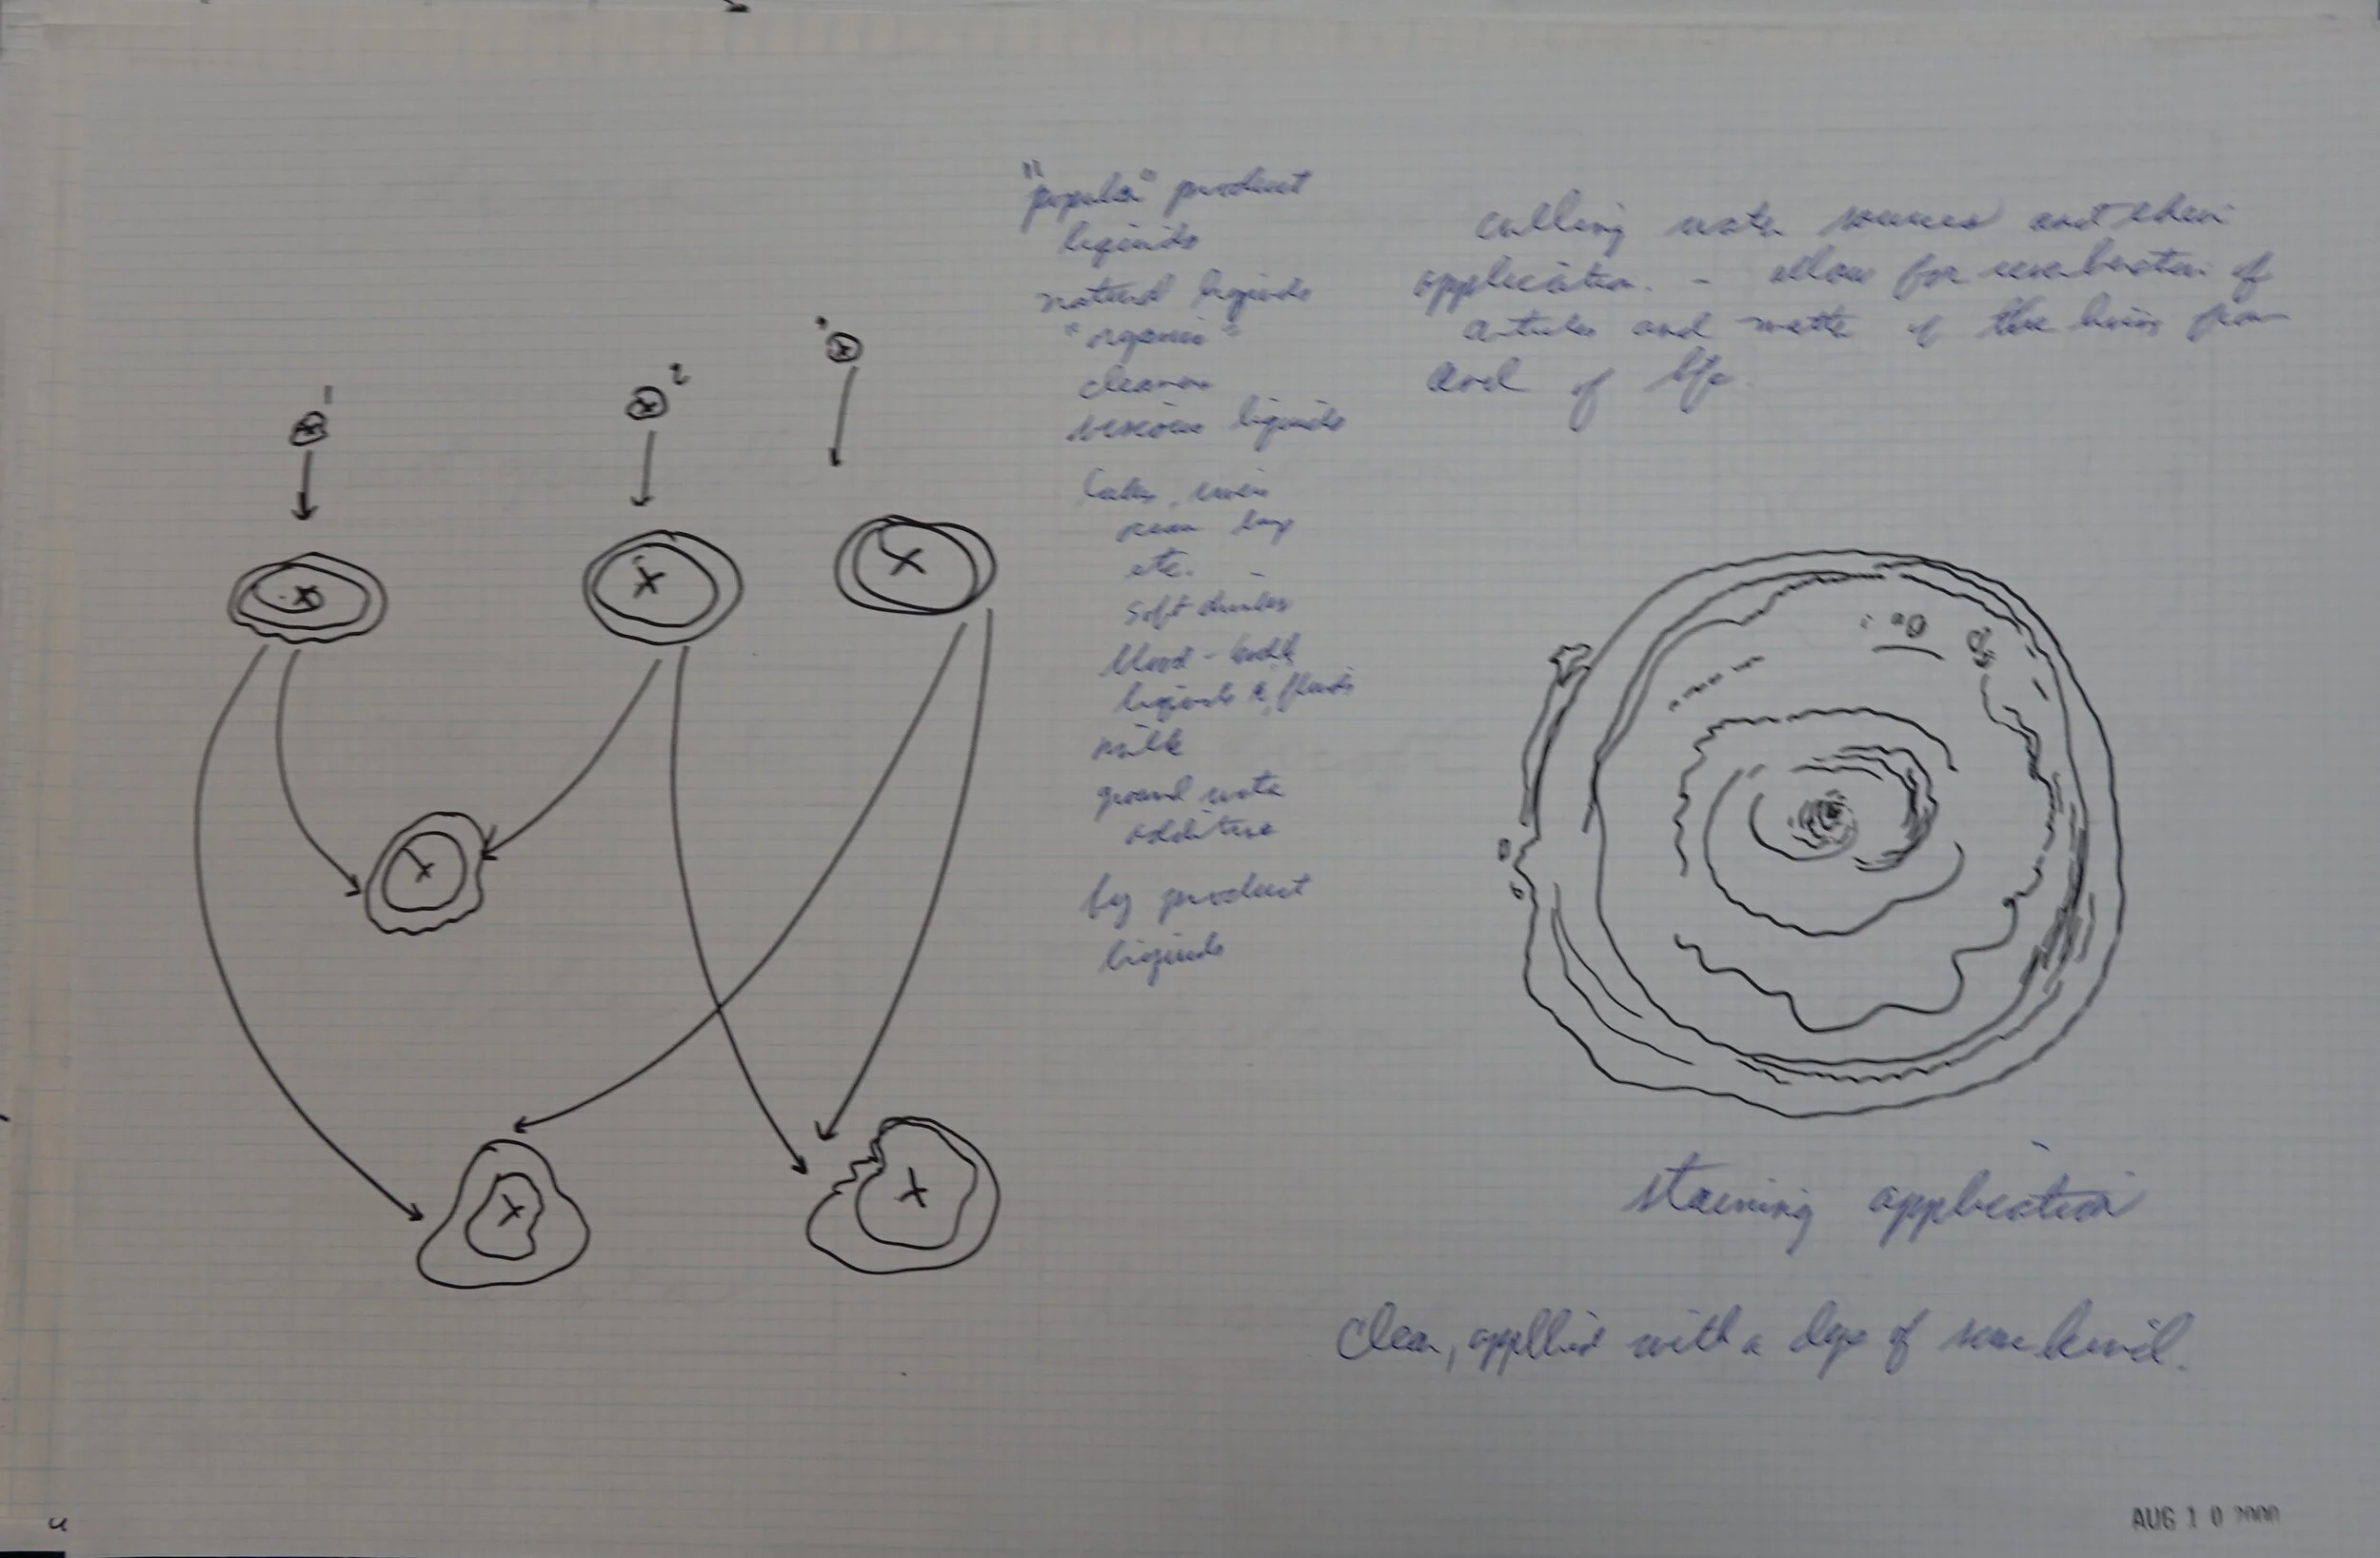 1
2
"popular" product
liquids
natural liquids
"organic"
cleaner
viscious liquids
Lakes, river
ocean bay
etc.
Soft drinks
blood - bodily
liquids & fluids
milk
ground water
additive
by product
liquids
culling water sources and their
application. - allow for reverberation of
articles and matter of the living from
and of life.
staining application
Clear, applied with a dye of some kind.
AUG 10 2000